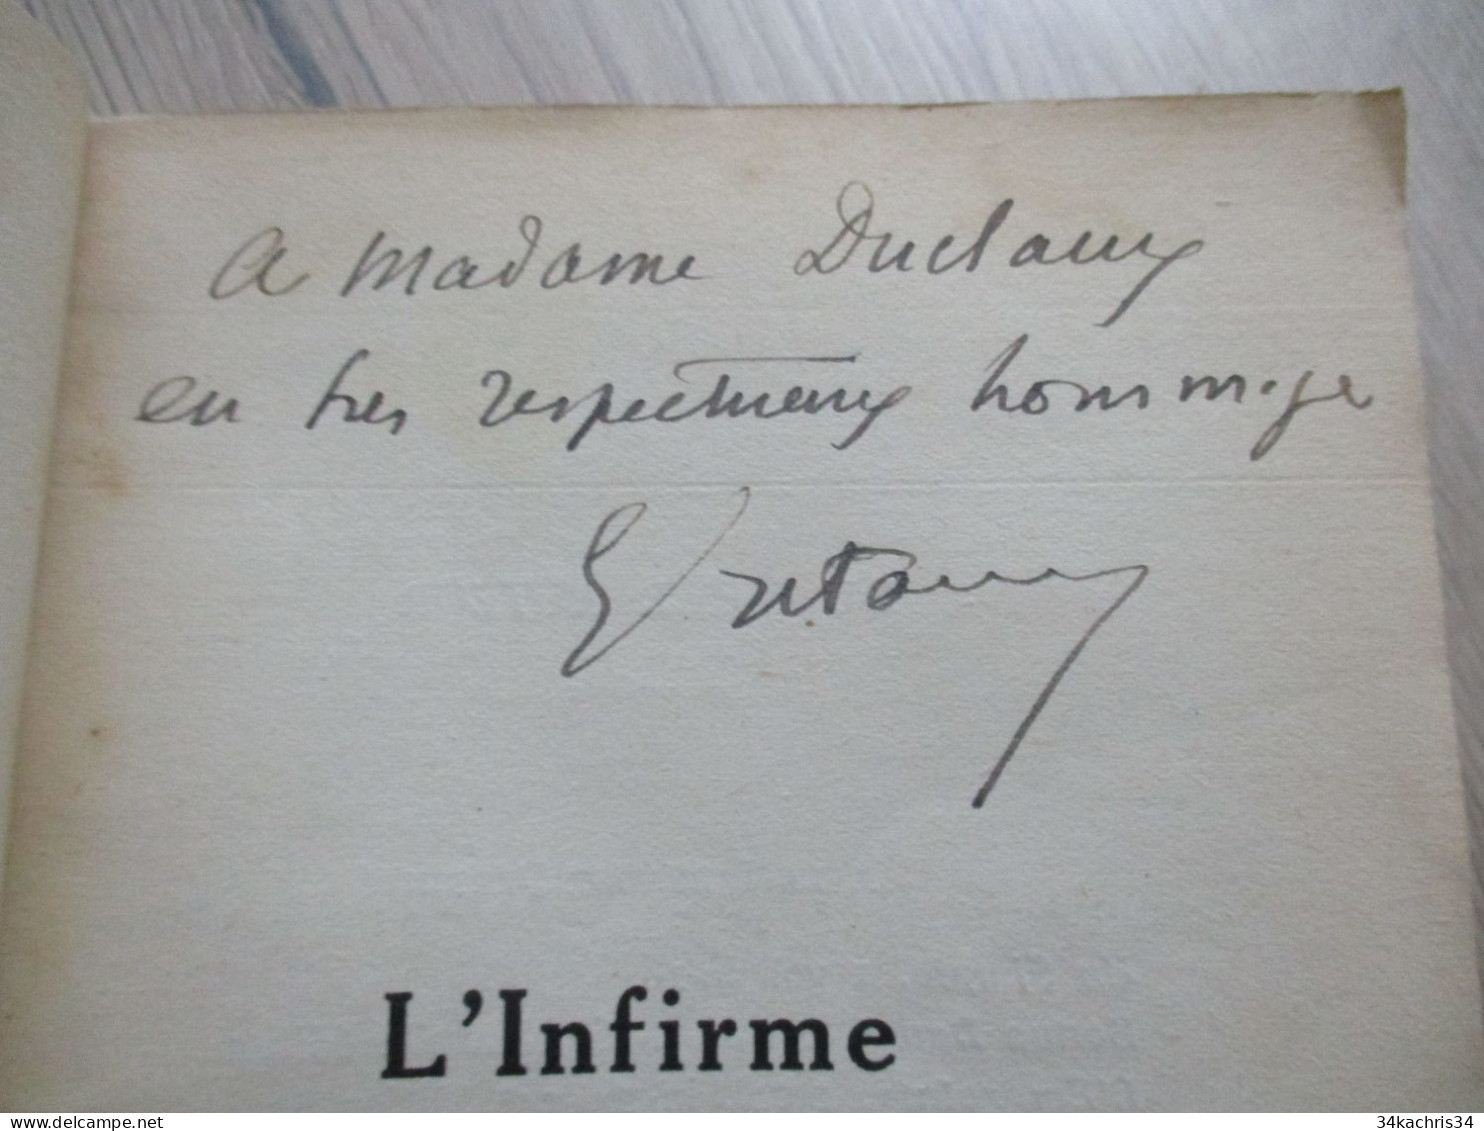 A Madame Duclaux
en tres respectueux hommage
L'Infirme
delcampe.net
34kachris34